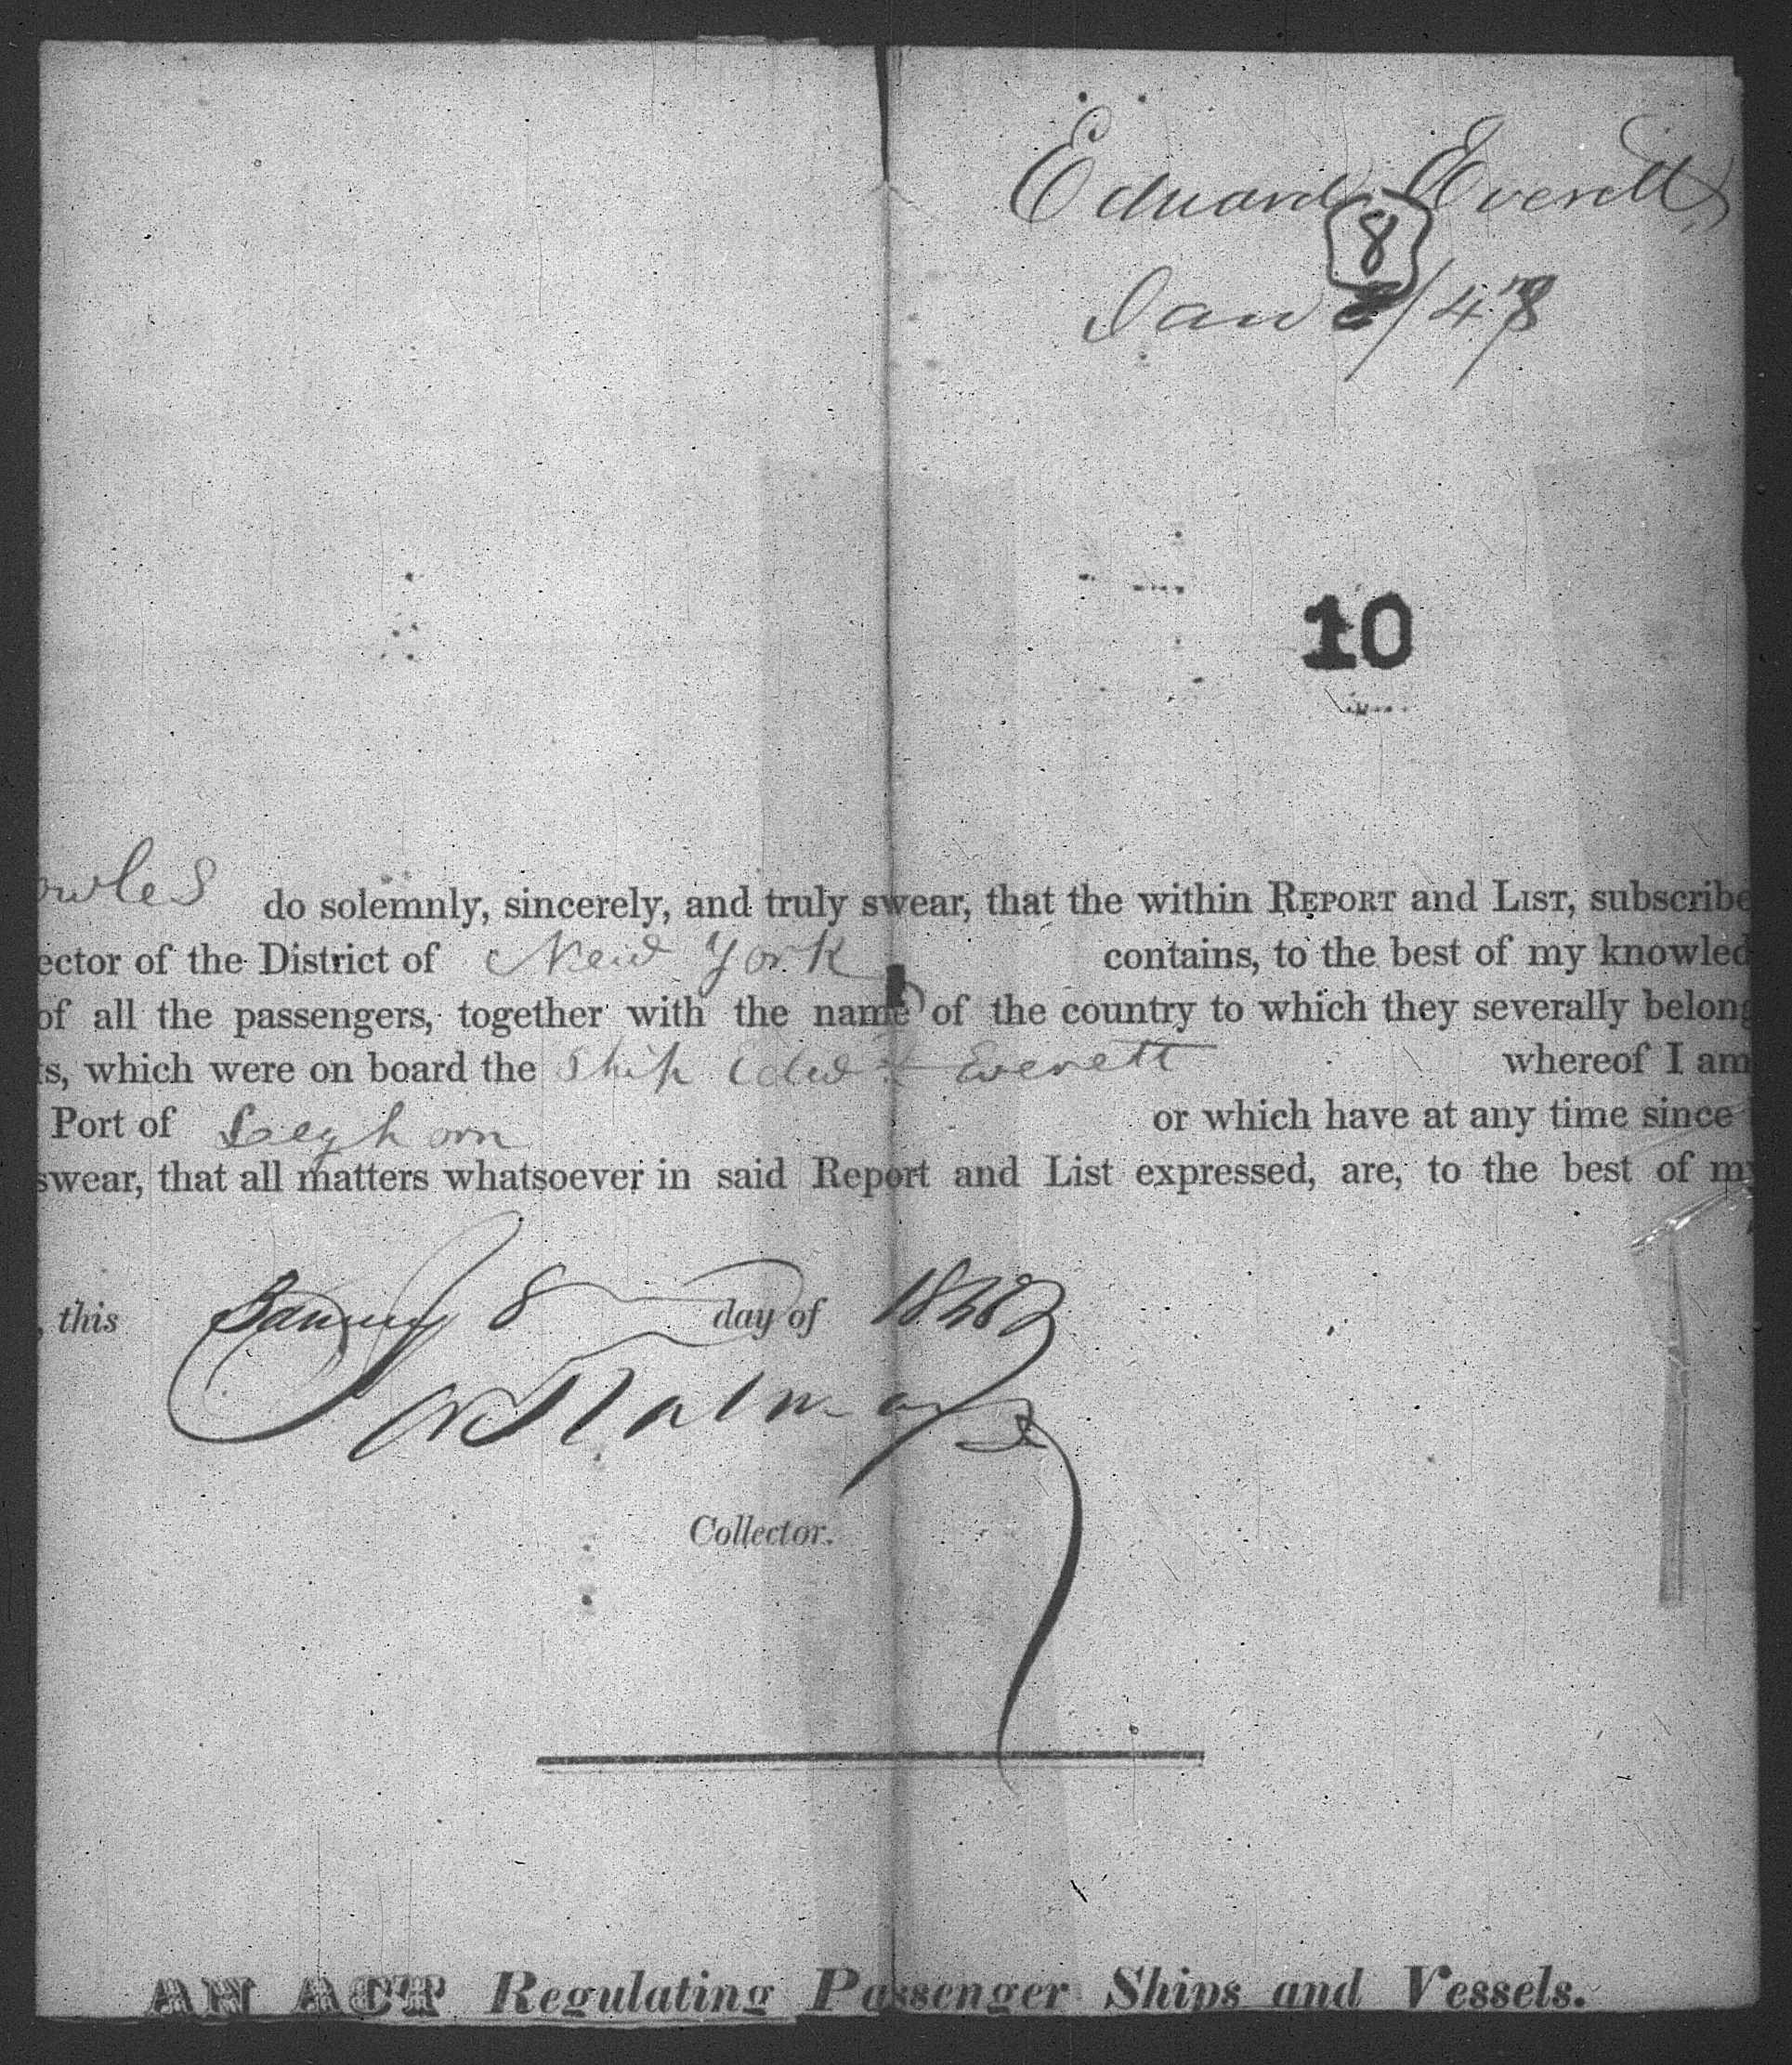 Edward Everett
8
Jan /48
10
owles do solemnly, sincerely, and truly swear, that the within REPORT and LIST, subscribe
ector of the District of New York contains, to the best of my knowled
of all the passengers, together with the name of the country to which they severally belong
ts, which were on board the Ship Edwd Everett whereof I am
Port of Leghorn or which have at any time since
swear, that all matters whatsoever in said Report and List expressed, are, to the best of my
, this January 8 day of 1848
Collector.
AN ACT Regulating Passenger Ships and Vessels.